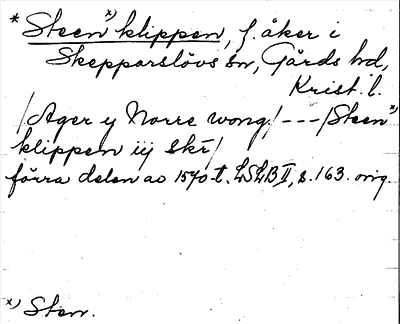 * Steen x) klippen, f. åker i
Skepparslövs sn, Gärds hd,
Krist. l.
/Ager y Norre wong/ --- /Steen x)
klippen iij skr/
förra delen av 1570-t. LSLB II, s. 163. orig.
x) Sten.